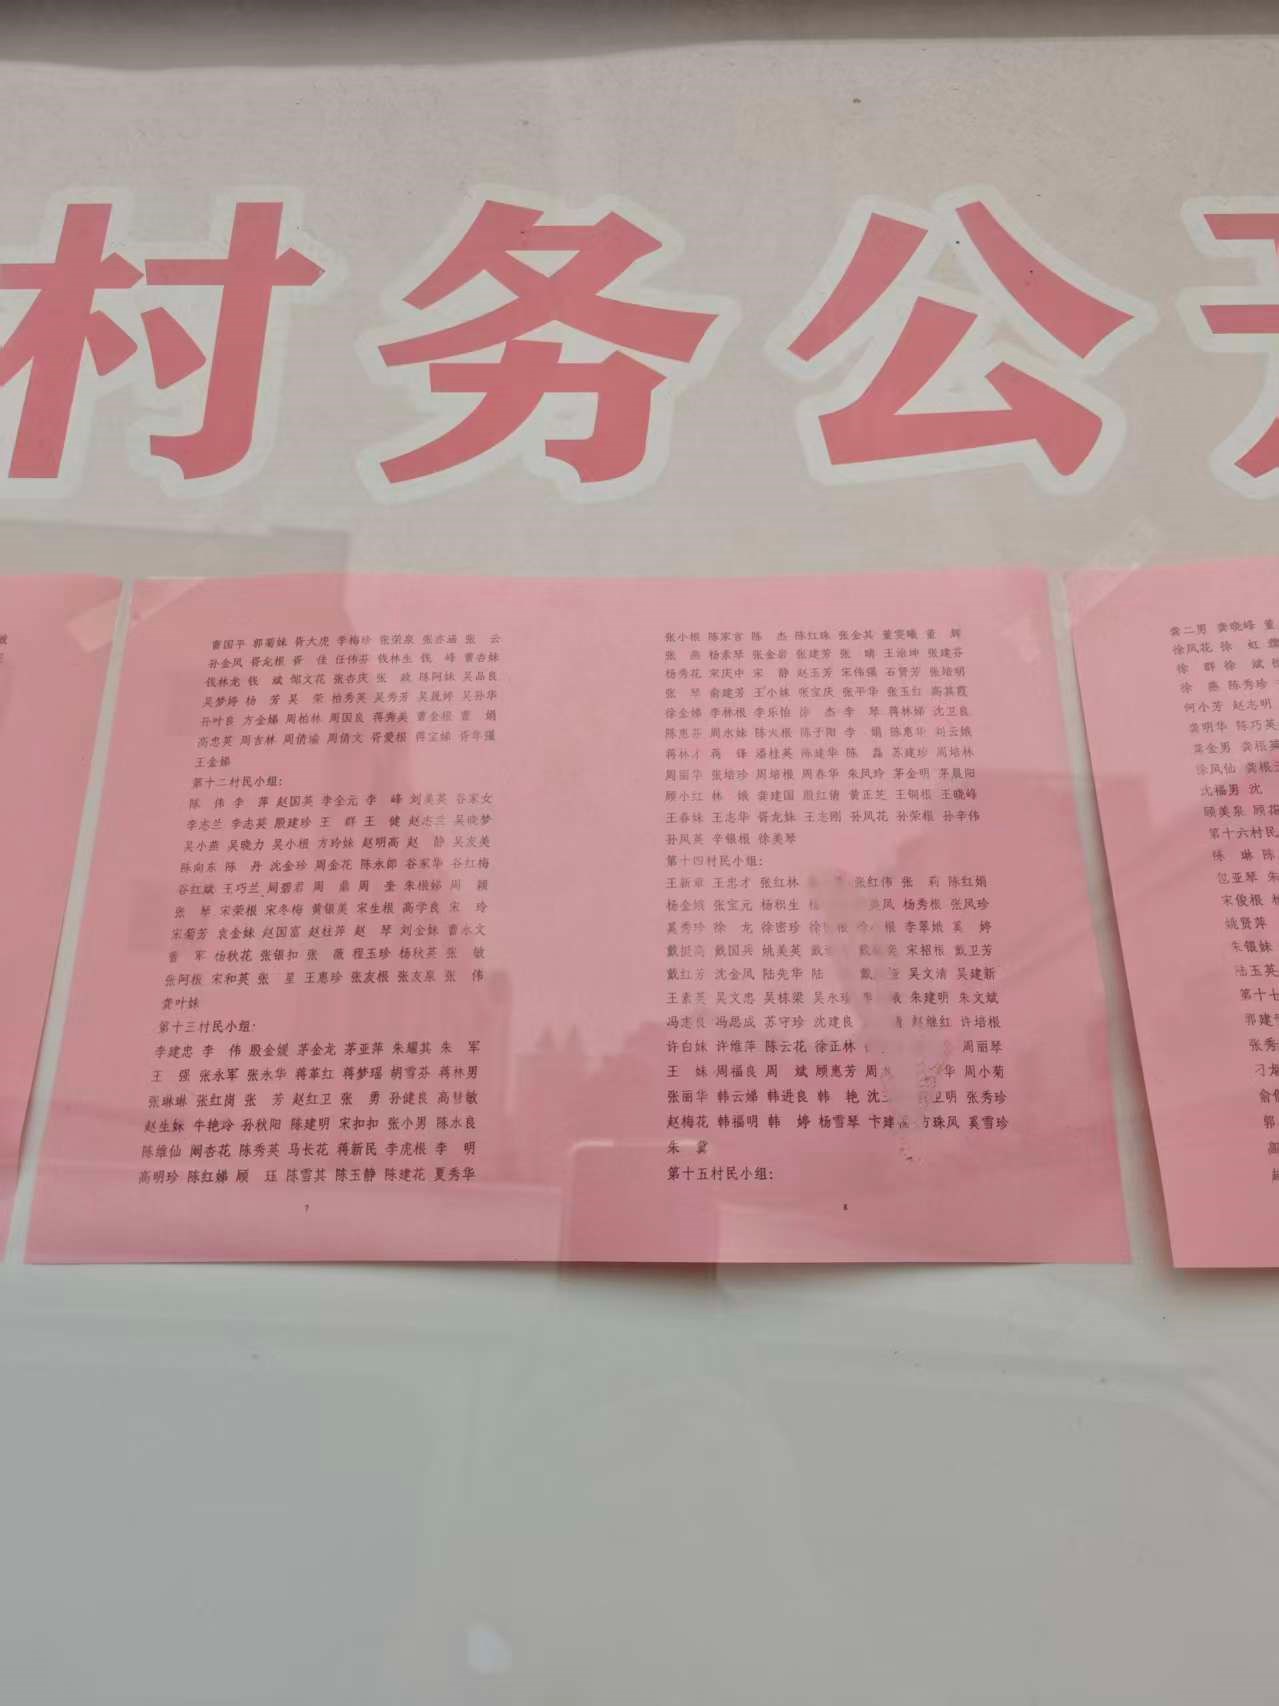 村务公开
曹国平 郭菊妹 胥大虎 李梅珍 张荣泉 张亦涵 张 云
孙金凤 胥龙根 胥 佳 任伟芬 钱林生 钱 峰 曹杏妹
钱林龙 钱 斌 邹文花 张杏庆 张 政 陈阿妹 吴品良
吴梦婷 杨 芳 吴 荣 柏秀英 吴秀芳 吴晟婷 吴孙华
孙叶良 方金娣 周柏林 周国良 蒋秀英 曹金根 曹 娟
高忠英 周吉林 周倩瑜 周倩文 胥爱根 蒋宝娣 胥年瑾
王金娣
第十二村民小组:
陈 伟 李 萍 赵国英 李全元 李 峰 刘美英 谷家女
李志兰 李志英 殷建珍 王 群 王 健 赵志兰 吴晓梦
吴小燕 吴晓力 吴小根 方玲妹 赵明高 赵 静 吴友美
陈向东 陈 丹 沈金珍 周金花 陈永郎 谷家华 谷红梅
谷红斌 王巧兰 周碧君 周 鼎 周 奎 朱根娣 周 颖
张 琴 宋荣根 宋冬梅 黄银美 宋生根 高学良 宋 玲
宋菊芳 袁金妹 赵国富 赵杜萍 赵 琴 刘金妹 曹永文
曹 军 杨秋花 张银扣 张 薇 程玉珍 杨秋英 张 敏
张阿根 宋和英 张 星 王惠珍 张友根 张友泉 张 伟
龚叶妹
第十三村民小组:
李建忠 李 伟 殷金媛 茅金龙 茅亚萍 朱耀其 朱 军
王 强 张永军 张永华 蒋革红 蒋梦瑶 胡雪芬 蒋林男
张琳琳 张红岗 张 芳 赵红卫 张 勇 孙健良 高慧敏
赵生妹 牛艳玲 孙秋阳 陈建明 宋扣扣 张小男 陈水良
陈维仙 阚杏花 陈秀英 马长花 蒋新民 李虎根 李 明
高明珍 陈红娣 顾 珏 陈雪其 陈玉静 陈建花 夏秀华
7
张小根 陈家言 陈 杰 陈红珠 张金其 董雯曦 董 辉
张 燕 杨素琴 张金岩 张建芳 张 晴 王治坤 张建芬
杨秀花 宋庆中 宋 静 赵玉芳 宋伟强 石贤芳 张培明
张 琴 俞建芳 王小妹 张宝庆 张平华 张玉红 高其霞
徐全娣 李林根 李乐怡 涂 杰 李 琴 蒋林娣 沈卫良
陈惠芬 周水妹 陈火根 陈子阳 李 娟 陈惠华 刘云娥
蒋林才 蒋 锋 潘桂英 陈建华 陈 磊 苏建珍 周培林
周丽华 张培珍 周培根 周春华 朱凤玲 茅金明 茅晨阳
顾小红 林 娥 龚建国 殷红倩 黄正芝 王铜根 王晓峰
王春妹 王志华 胥龙妹 王志刚 孙凤花 孙荣根 孙辛伟
孙凤英 辛银根 徐美琴
第十四村民小组:
王新章 王忠才 张红林 张红伟 张 莉 陈红娟
杨金娥 张宝元 杨积生 英凤 杨秀根 张凤珍
奚秀珍 徐 龙 徐密珍 根 李翠娥 奚 婷
戴挺高 戴国兵 姚美英 宋招根 戴卫芳
戴红芳 沈金凤 陆先华 陆 吴文清 吴建新
王素英 吴文忠 吴栋梁 吴永珍 朱建明 朱文斌
冯志良 冯思成 苏守珍 沈建良 赵继红 许培根
许白妹 许维萍 陈云花 徐正林 周丽琴
王 妹 周福良 周 斌 顾惠芳 周 华 周小菊
张丽华 韩云娣 韩进良 韩 艳 沈 卫明 张秀珍
赵梅花 韩福明 韩 婷 杨雪琴 卞建 方珠凤 奚雪珍
朱 黛
第十五村民小组:
8
龚二男 龚晓峰 董
徐凤花 张 虹
徐 群 徐 斌
徐 燕 陈秀珍
何小芳 赵志明
龚明华 陈巧英
龚金男 龚根
徐凤仙 龚根
沈福男 沈
顾美泉 顾
第十六村民
陈 琳 陈
包亚琴 朱
宋俊根
姚贤萍
朱银妹
陆玉英
第十七
郭建
张秀